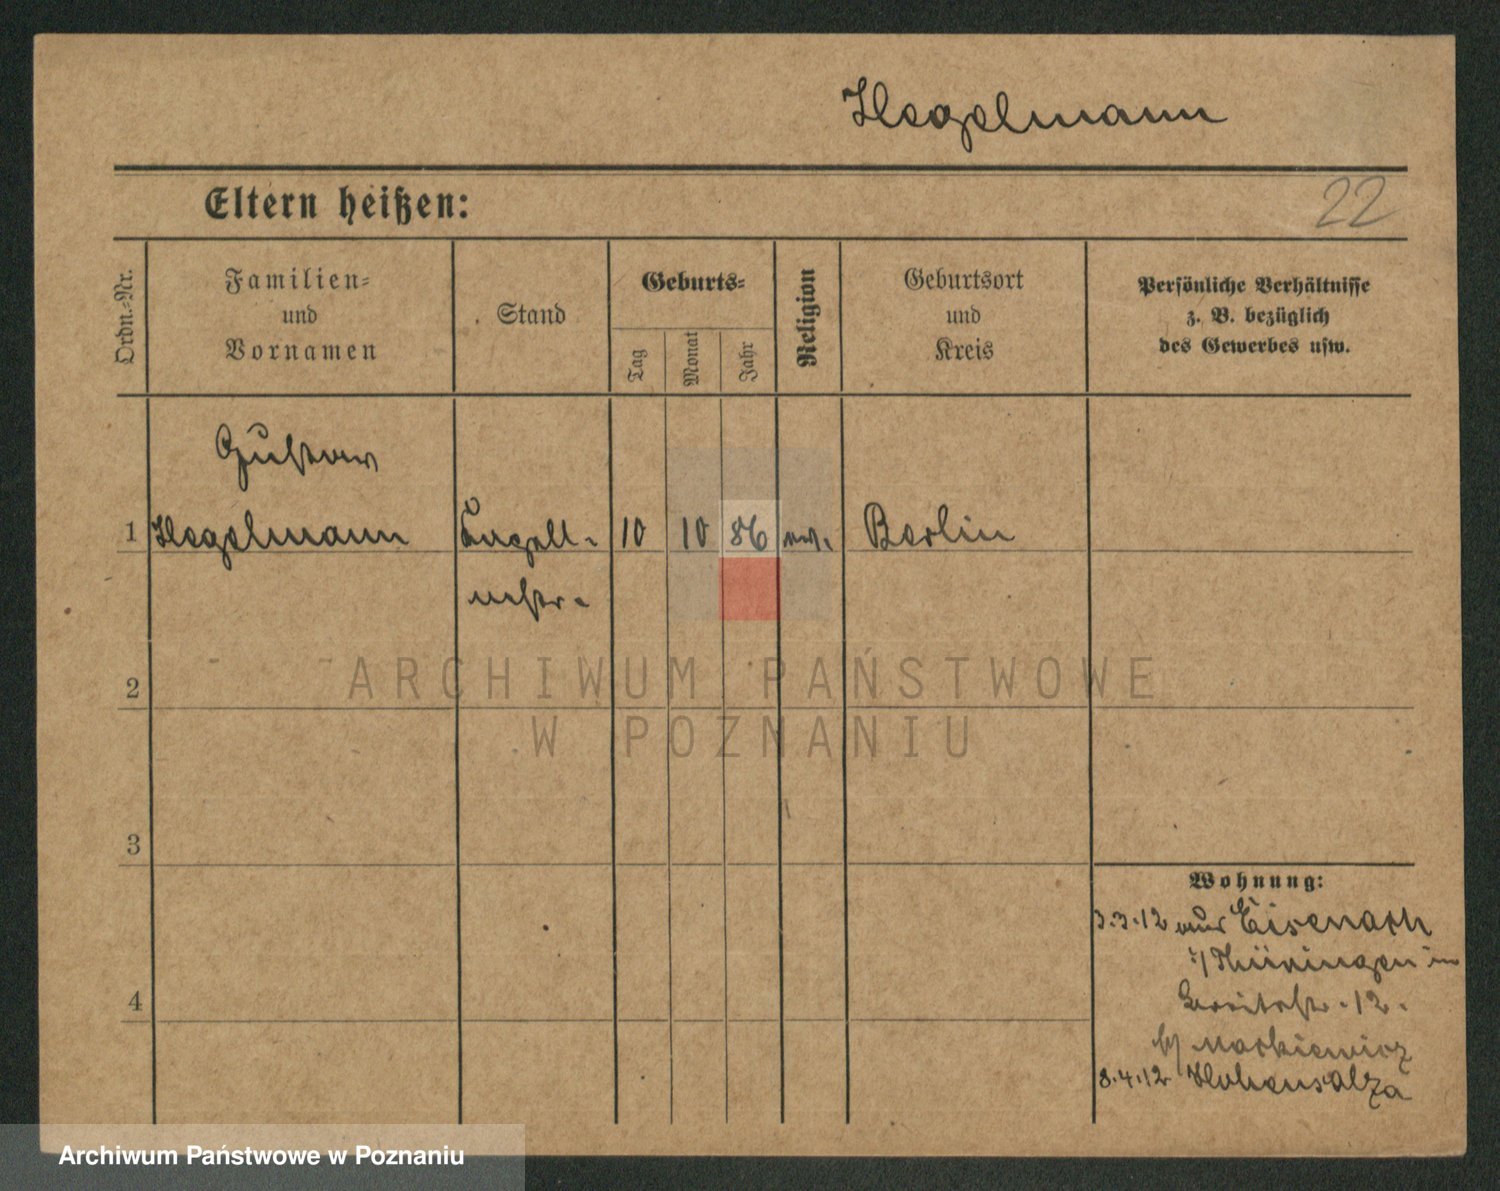 Hegelmann
Eltern heißen:
22
Ordn.-Nr.
Familien-
und
Vornamen
Stand
Geburts-
Tag
Monat
Jahr
Religion
Geburtsort
und
Kreis
Persönliche Verhältnisse
z. B. bezüglich
des Gewerbes usw.
Gustav
1 Hegelmann 10 10 86 ev. Berlin
2
3
4
Wohnung:
3.3.12 aus Eisenach
i/Thüringen
12.
b/ Markiewicz
8.4.12 Hohensalza
ARCHIWUM PAŃSTWOWE
W POZNANIU
Archiwum Państwowe w Poznaniu